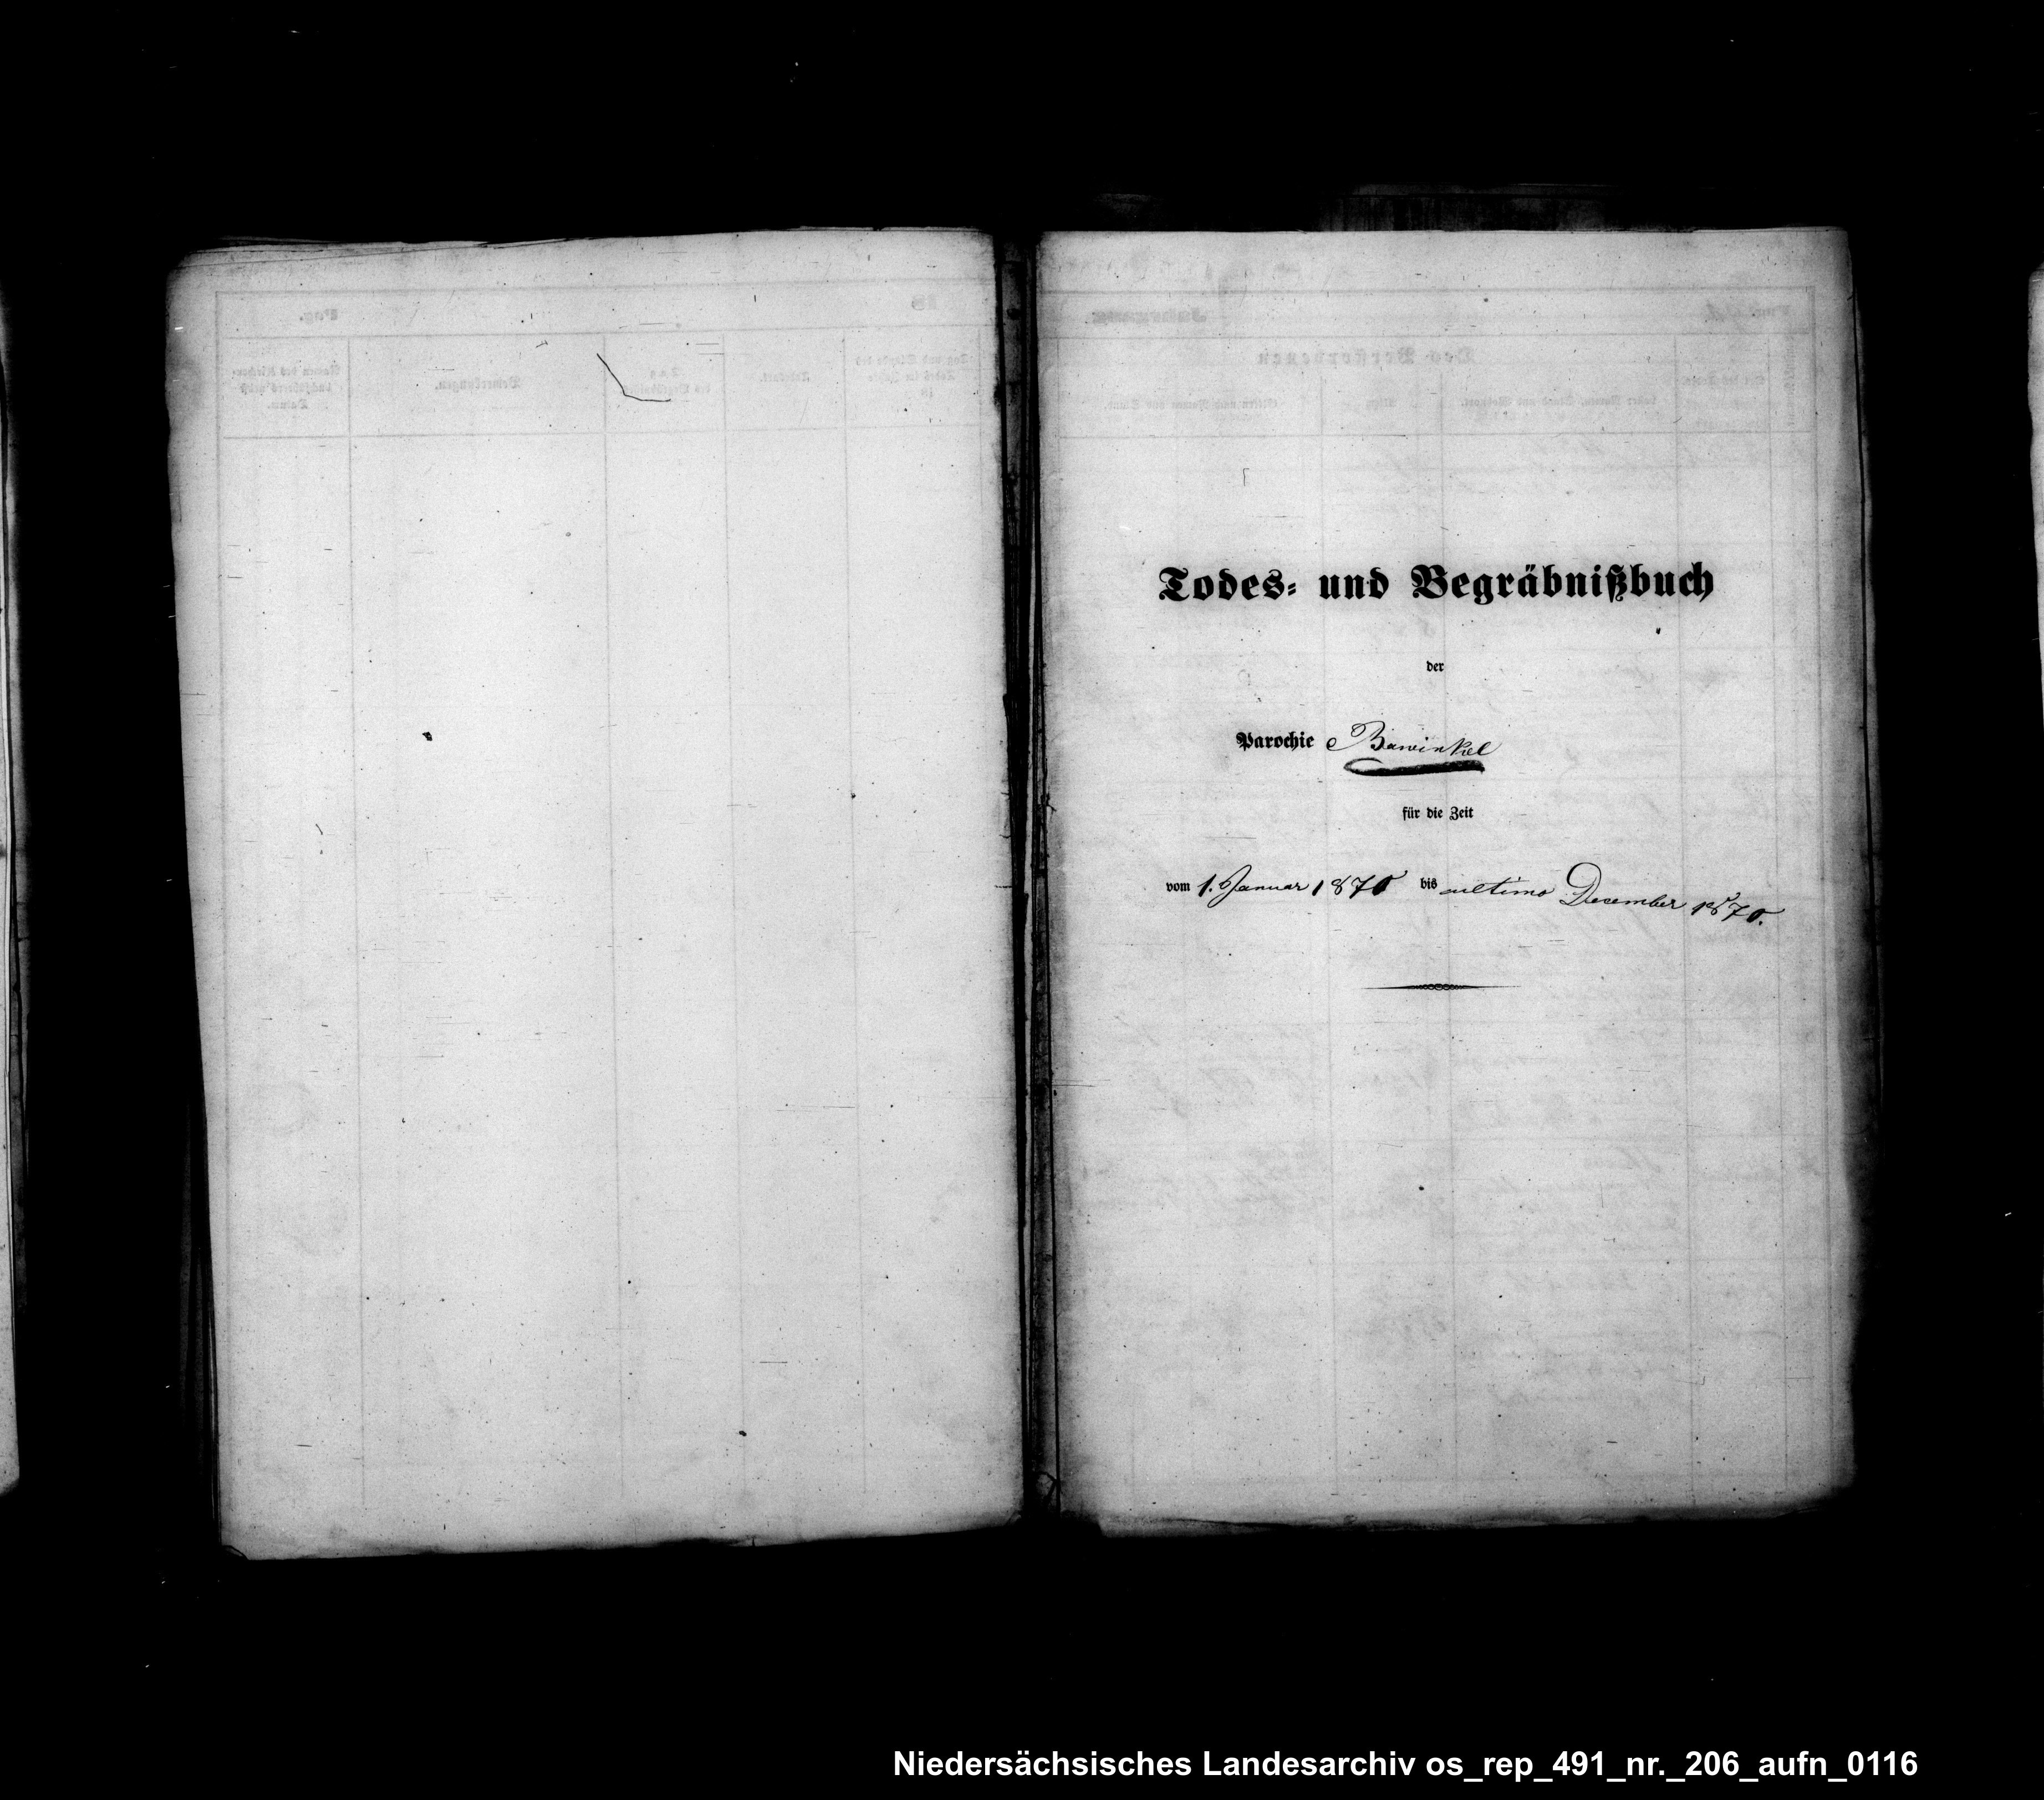 Todes- und Begräbnißbuch
der
Parochie Bawinkel
für die Zeit
vom 1. Januar 1870 bis ultimo December 1870.
Niedersächsisches Landesarchiv os_rep_491_nr._206_aufn_0116